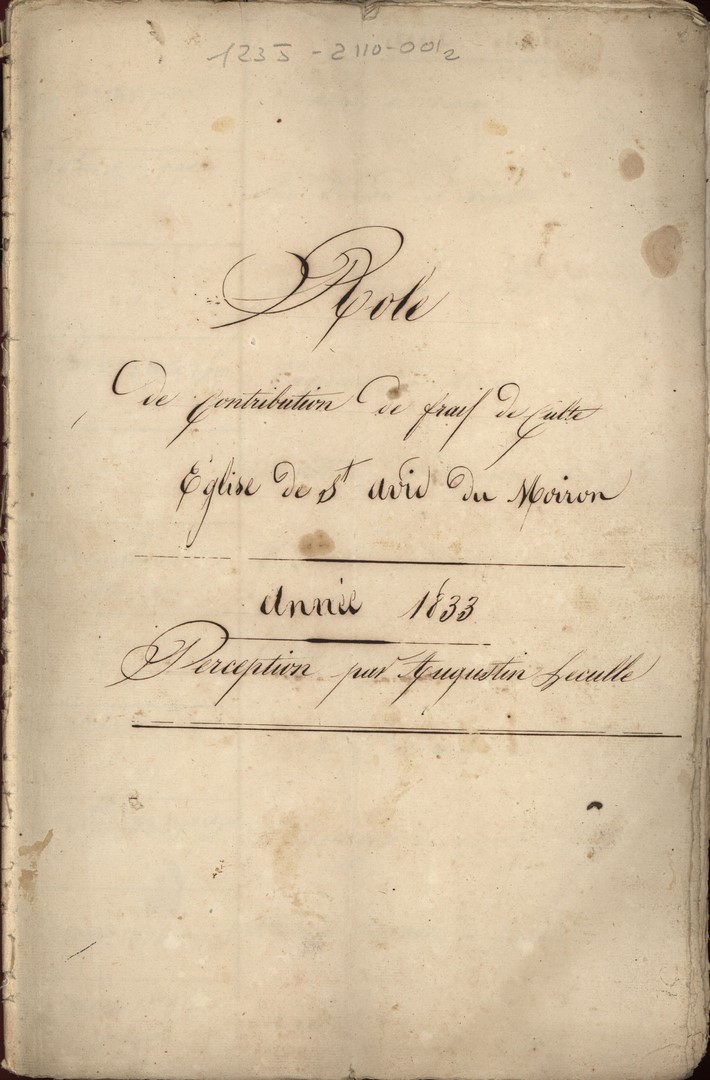 123J-2110-001₂
Role
de contribution de frais de Culte
Église de St avid du Moiron
Année 1833
Perception par Augustin Leculle